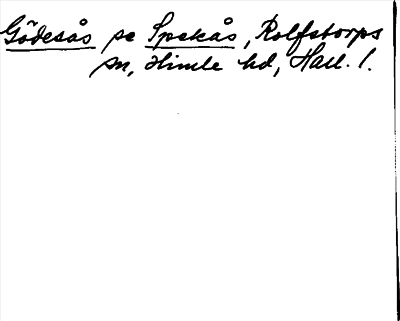 Gödesås se Spekås, Rolfstorps
sn, Himle hd, Hall. l.